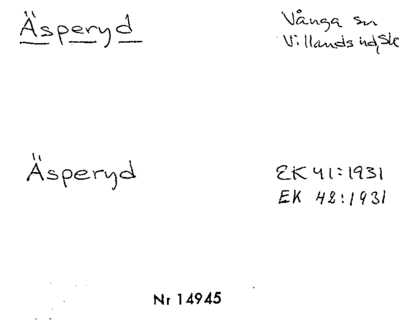 Äsperyd
Vånga sn
Villands hd, Sk
Äsperyd
EK 41:1931
EK 42:1931
Nr 14945